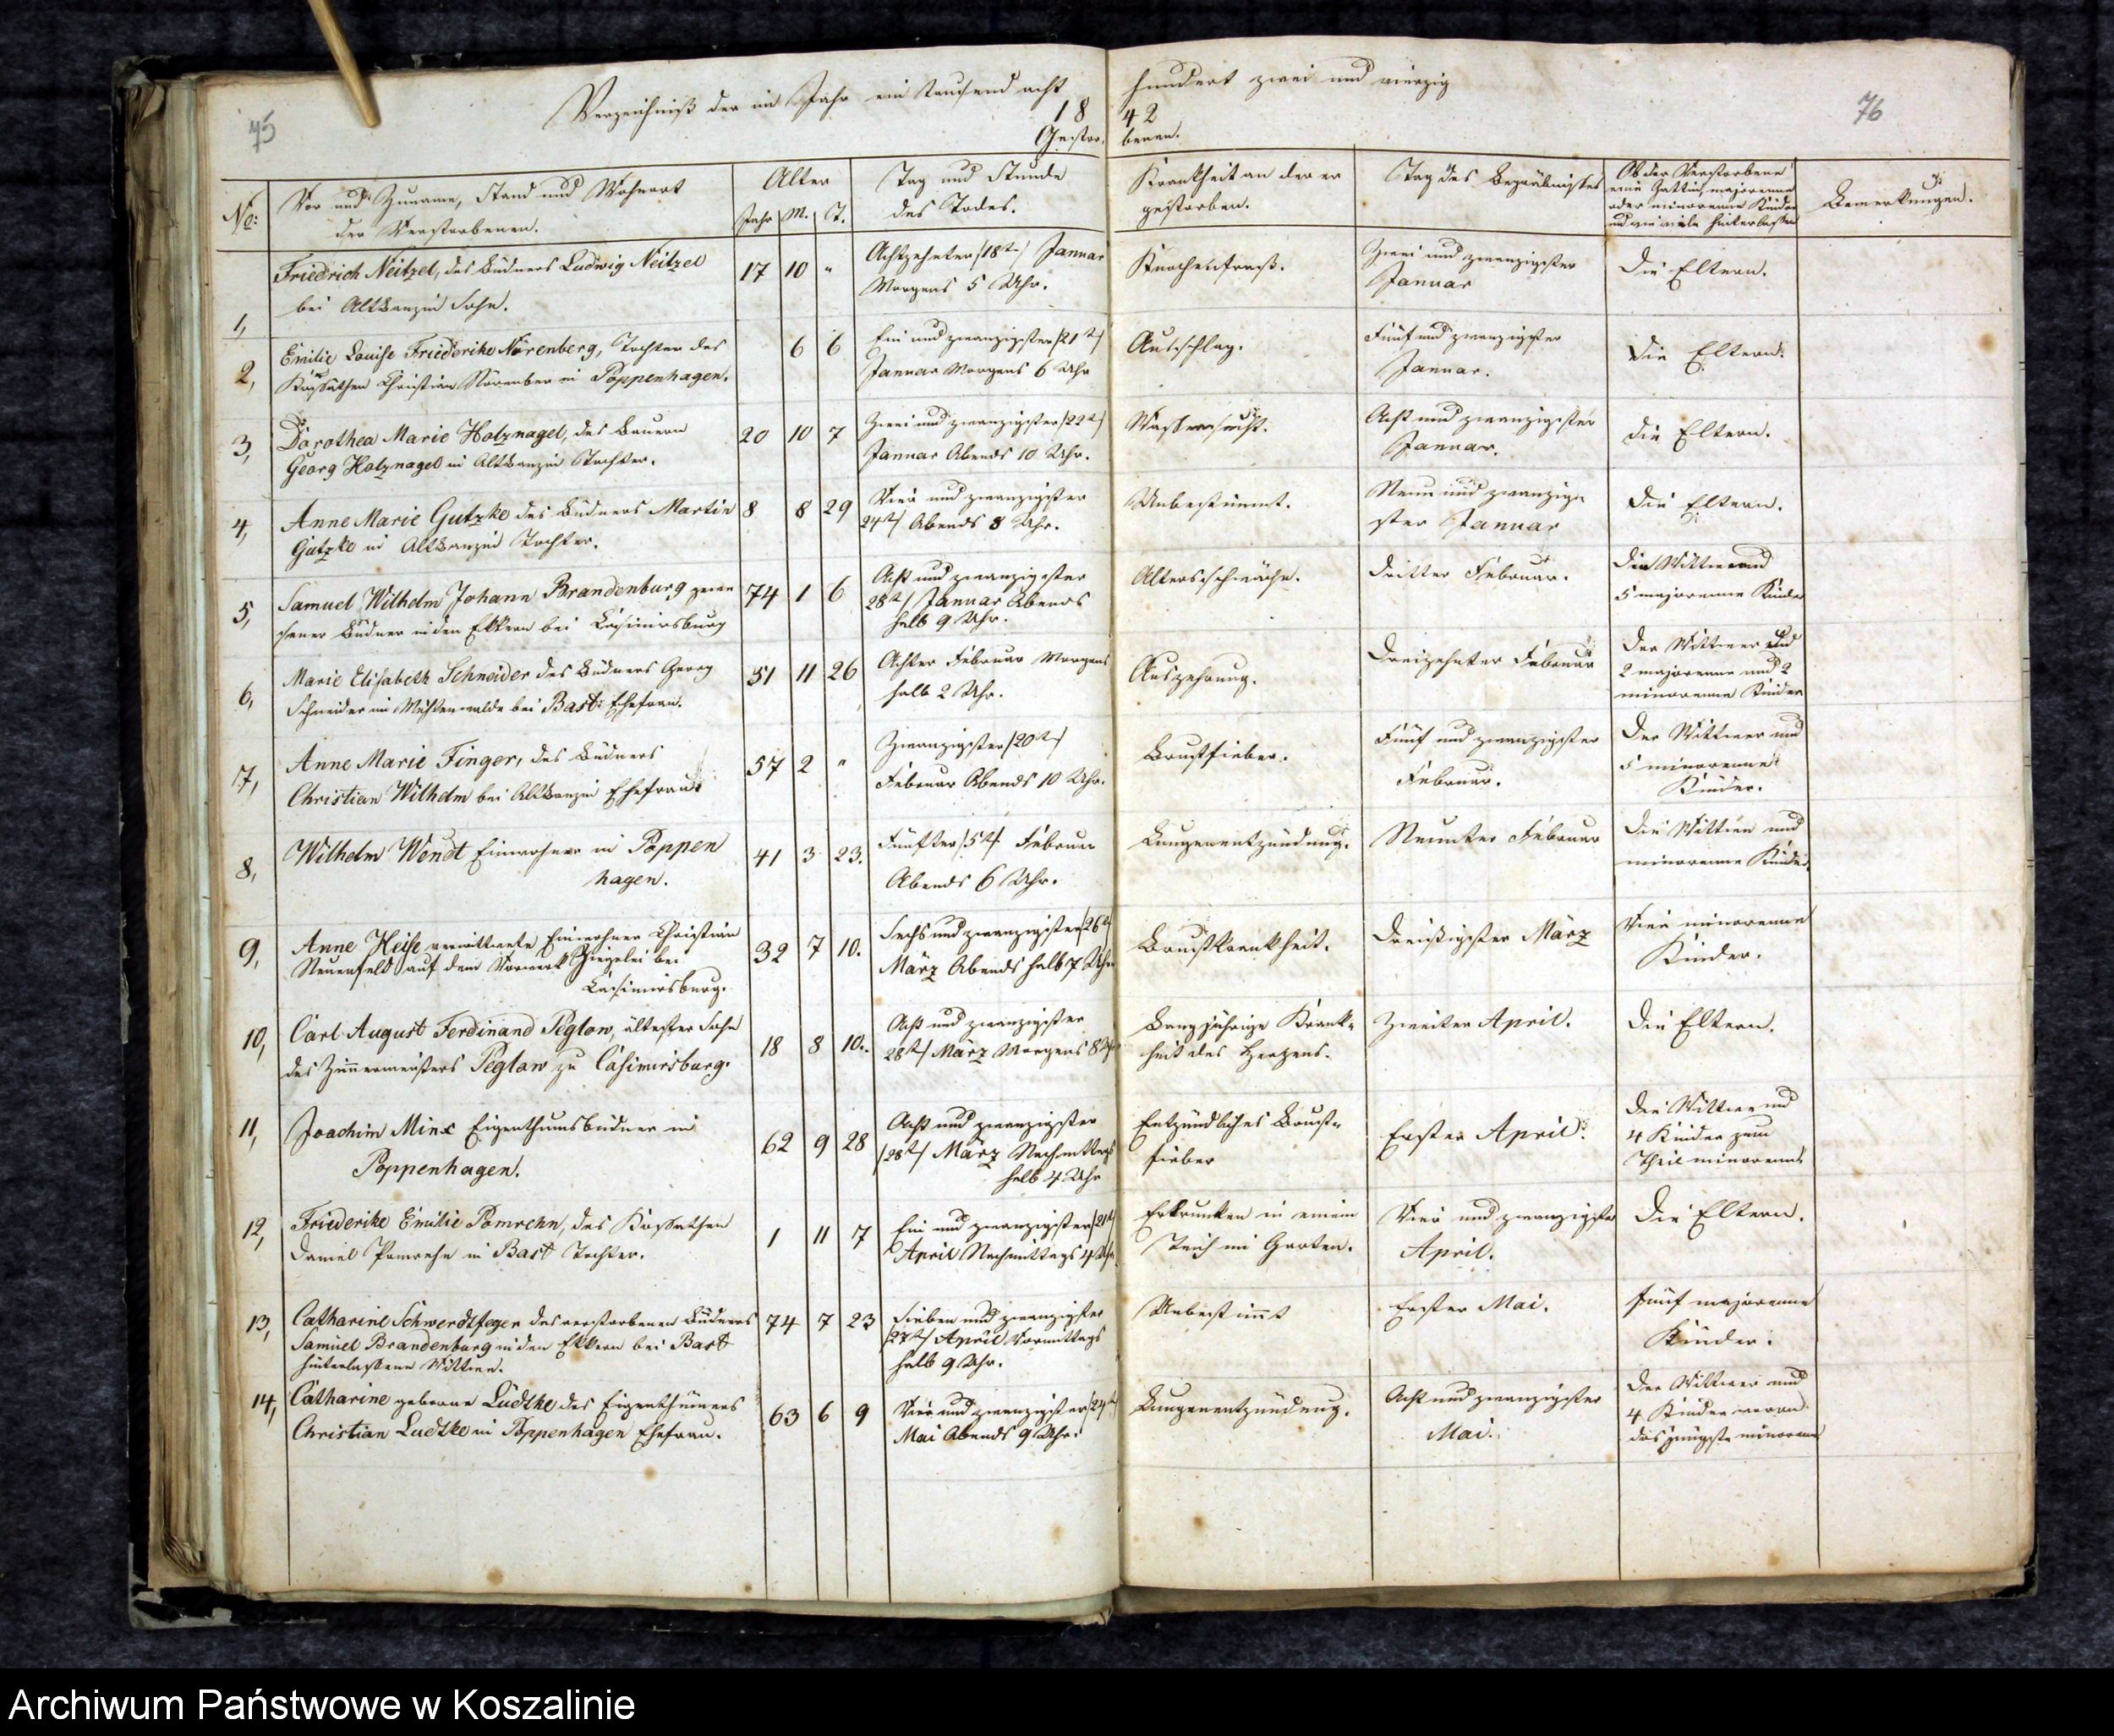 75
76
Verzeichniß der im Jahr ein tausend acht hundert zwei und vierzig
18 42
Gestor benen.
No:
Vor und Zuname, Stand und Wohnort
der Verstorbenen.
Alter
Jahr M. T.
Tag und Stunde
des Todes.
Krankheit an der er
gestorben.
Tag des Begräbnisses
Ob der Verstorbene
eine Gattin, majorenne
oder minorenne Kinder
und wie viele hinterlassen
Bemerkungen.
1,
Friedrich Neitzel, des Büdners Ludwig Neitzel
bei Altbanzin Sohn.
17 10 "
Achtzehnter /18t/ Januar
Morgens 5 Uhr.
Knochenfraß.
Zwei und zwanzigster
Januar
Die Eltern.
2,
Emilie Louise Friederike Nörenberg, Tochter des
Kossäthen Christian Nörenber in Poppenhagen.
6 6
Ein und zwanzigster /21t/
Januar Morgens 6 Uhr
Ausschlag.
Fünf und zwanzigster
Januar.
Die Eltern.
3,
Dorothea Marie Holznagel, des Bauern
Georg Holznagel in Altbanzin Tochter.
20 10 7
Zwei und zwanzigster /22t/
Januar Abends 10 Uhr.
Wassersucht.
Acht und zwanzigster
Januar.
Die Eltern.
4,
Anne Marie Gutzke des Büdners Martin
Gutzke in Altbanzin Tochter.
8 8 29
Vier und zwanzigster
24t/ Abends 8 Uhr.
Unbestimmt.
Neun und zwanzig-
ster Januar
Die Eltern.
5,
Samuel Wilhelm Johann Brandenburg gewe
sener Büdner in den Ekkern bei Casimirsburg
74 1 6
Acht und zwanzigster
28t/ Januar Abends
halb 9 Uhr.
Altersschwäche.
Dritter Februar.
Die Wittwe und
5 majorenne Kinder
6,
Marie Elisabeth Schneider des Büdners Georg
Schneider im Wüstenwalde bei Bast Ehefrau.
51 11 26
Achter Februar Morgens
halb 2 Uhr.
Auszehrung.
Dreizehnter Februar
Der Wittwer und
2 majorenne und 2
minorenne Kinder
7,
Anne Marie Finger, des Büdners
Christian Wilhelm bei Altbanzin Ehefrau.
57 2 "
Zwanzigster /20t/
Februar Abends 10 Uhr.
Brustfieber.
Fünf und zwanzigster
Februar.
Der Wittwer und
5 minorenne
Kinder.
8,
Wilhelm Wendt Einwohner in Poppen
hagen.
41 3 23.
Fünfter /5t/ Februar
Abends 6 Uhr.
Lungenentzündung.
Neunter Februar
Die Wittwe und
minorenne Kinder.
9,
Anne Heise verwittwete Einwohner Christian
Neuenfeld auf dem Vorwerk Ziegelei bei
Casimirsburg.
32 7 10.
Sechs und zwanzigster /26t/
März Abends halb 7 Uhr
Brustkrankheit.
Dreißigster März
Vier minorenne
Kinder.
10,
Carl August Ferdinand Peglow, ältester Sohn
des Zimmermeisters Peglow zu Casimirsburg.
18 8 10.
Acht und zwanzigster
28t/ März Morgens 8 Uhr
Langjährige Krank-
heit des Herzens.
Zweiter April.
Die Eltern.
11,
Joachim Minx Eigenthumsbüdner in
Poppenhagen.
62 9 28
Acht und zwanzigster
/28t/ März Nachmittags
halb 4 Uhr
Entzündliches Brust-
fieber
Erster April.
Die Wittwe und
4 Kinder zum
Theil minorenne
12,
Friederike Emilie Pomrehn, des Kossathen
Daniel Pomrehn in Bast Tochter.
1 11 7
Ein und zwanzigster /21t/
April Nachmittags 4 Uhr
Ertrunken in einem
Teich im Garten.
Vier und zwanzigster
April.
Die Eltern.
13,
Catharine Schwerdtfeger des verstorbenen Büdners
Samuel Brandenburg in den Ekkern bei Bast
hinterlassene Wittwe.
74 7 23
Sieben und zwanzigster
/27t/ April Vormittags
halb 9 Uhr.
Unbestimmt
Erster Mai.
Fünf majorenne
Kinder.
14,
Catharine geborne Lüdtke des Eigenthümers
Christian Luedtke in Poppenhagen Ehefrau.
63 6 9
Vier und zwanzigster /24t/
Mai Abends 9 Uhr.
Lungenentzündung.
Acht und zwanzigster
Mai.
Der Wittwer und
4 Kinder wovon
das jüngste minorenn
Archiwum Państwowe w Koszalinie